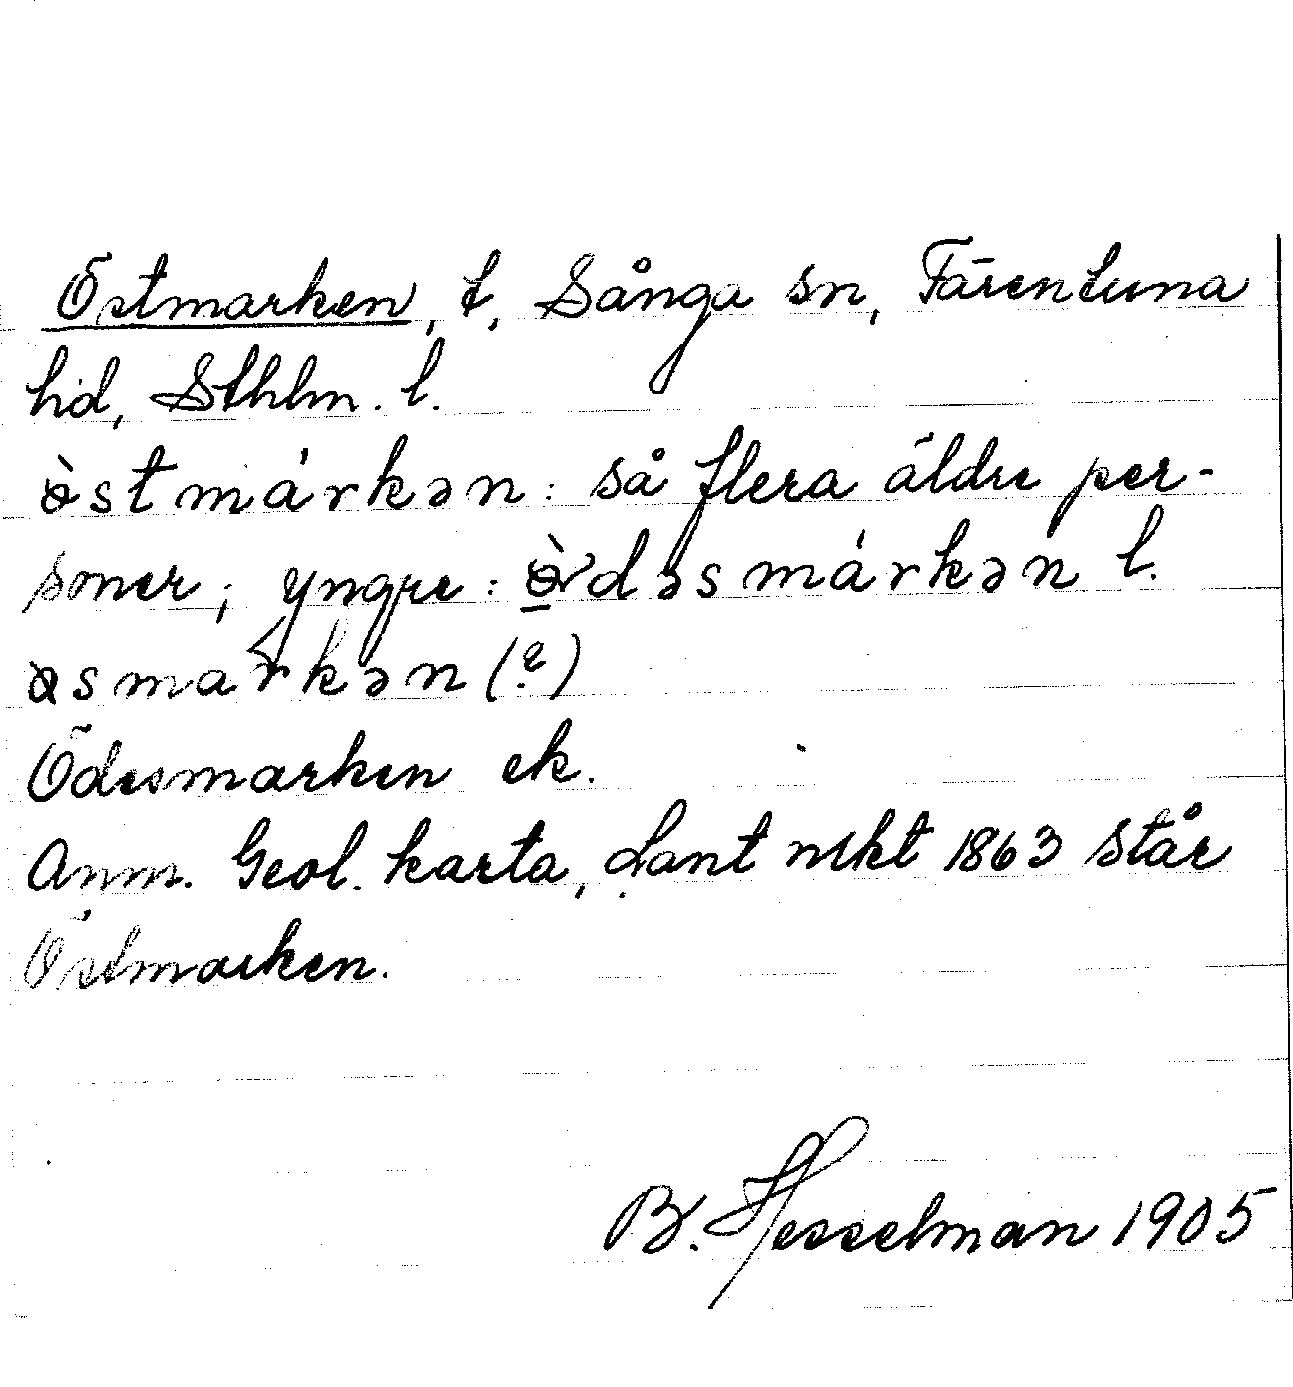 Östmarken, t, Sånga sn, Färentuna
hd, Sthlm. l.
ò̵stmárkən: så flera äldre per-
soner; yngre: ò̵dəsmárkən l.
ɵsmarkən (?)
Ödesmarken ek.
Anm. Geol. karta, Lant mkt 1863 står
Östmarken.
B. Hesselman 1905